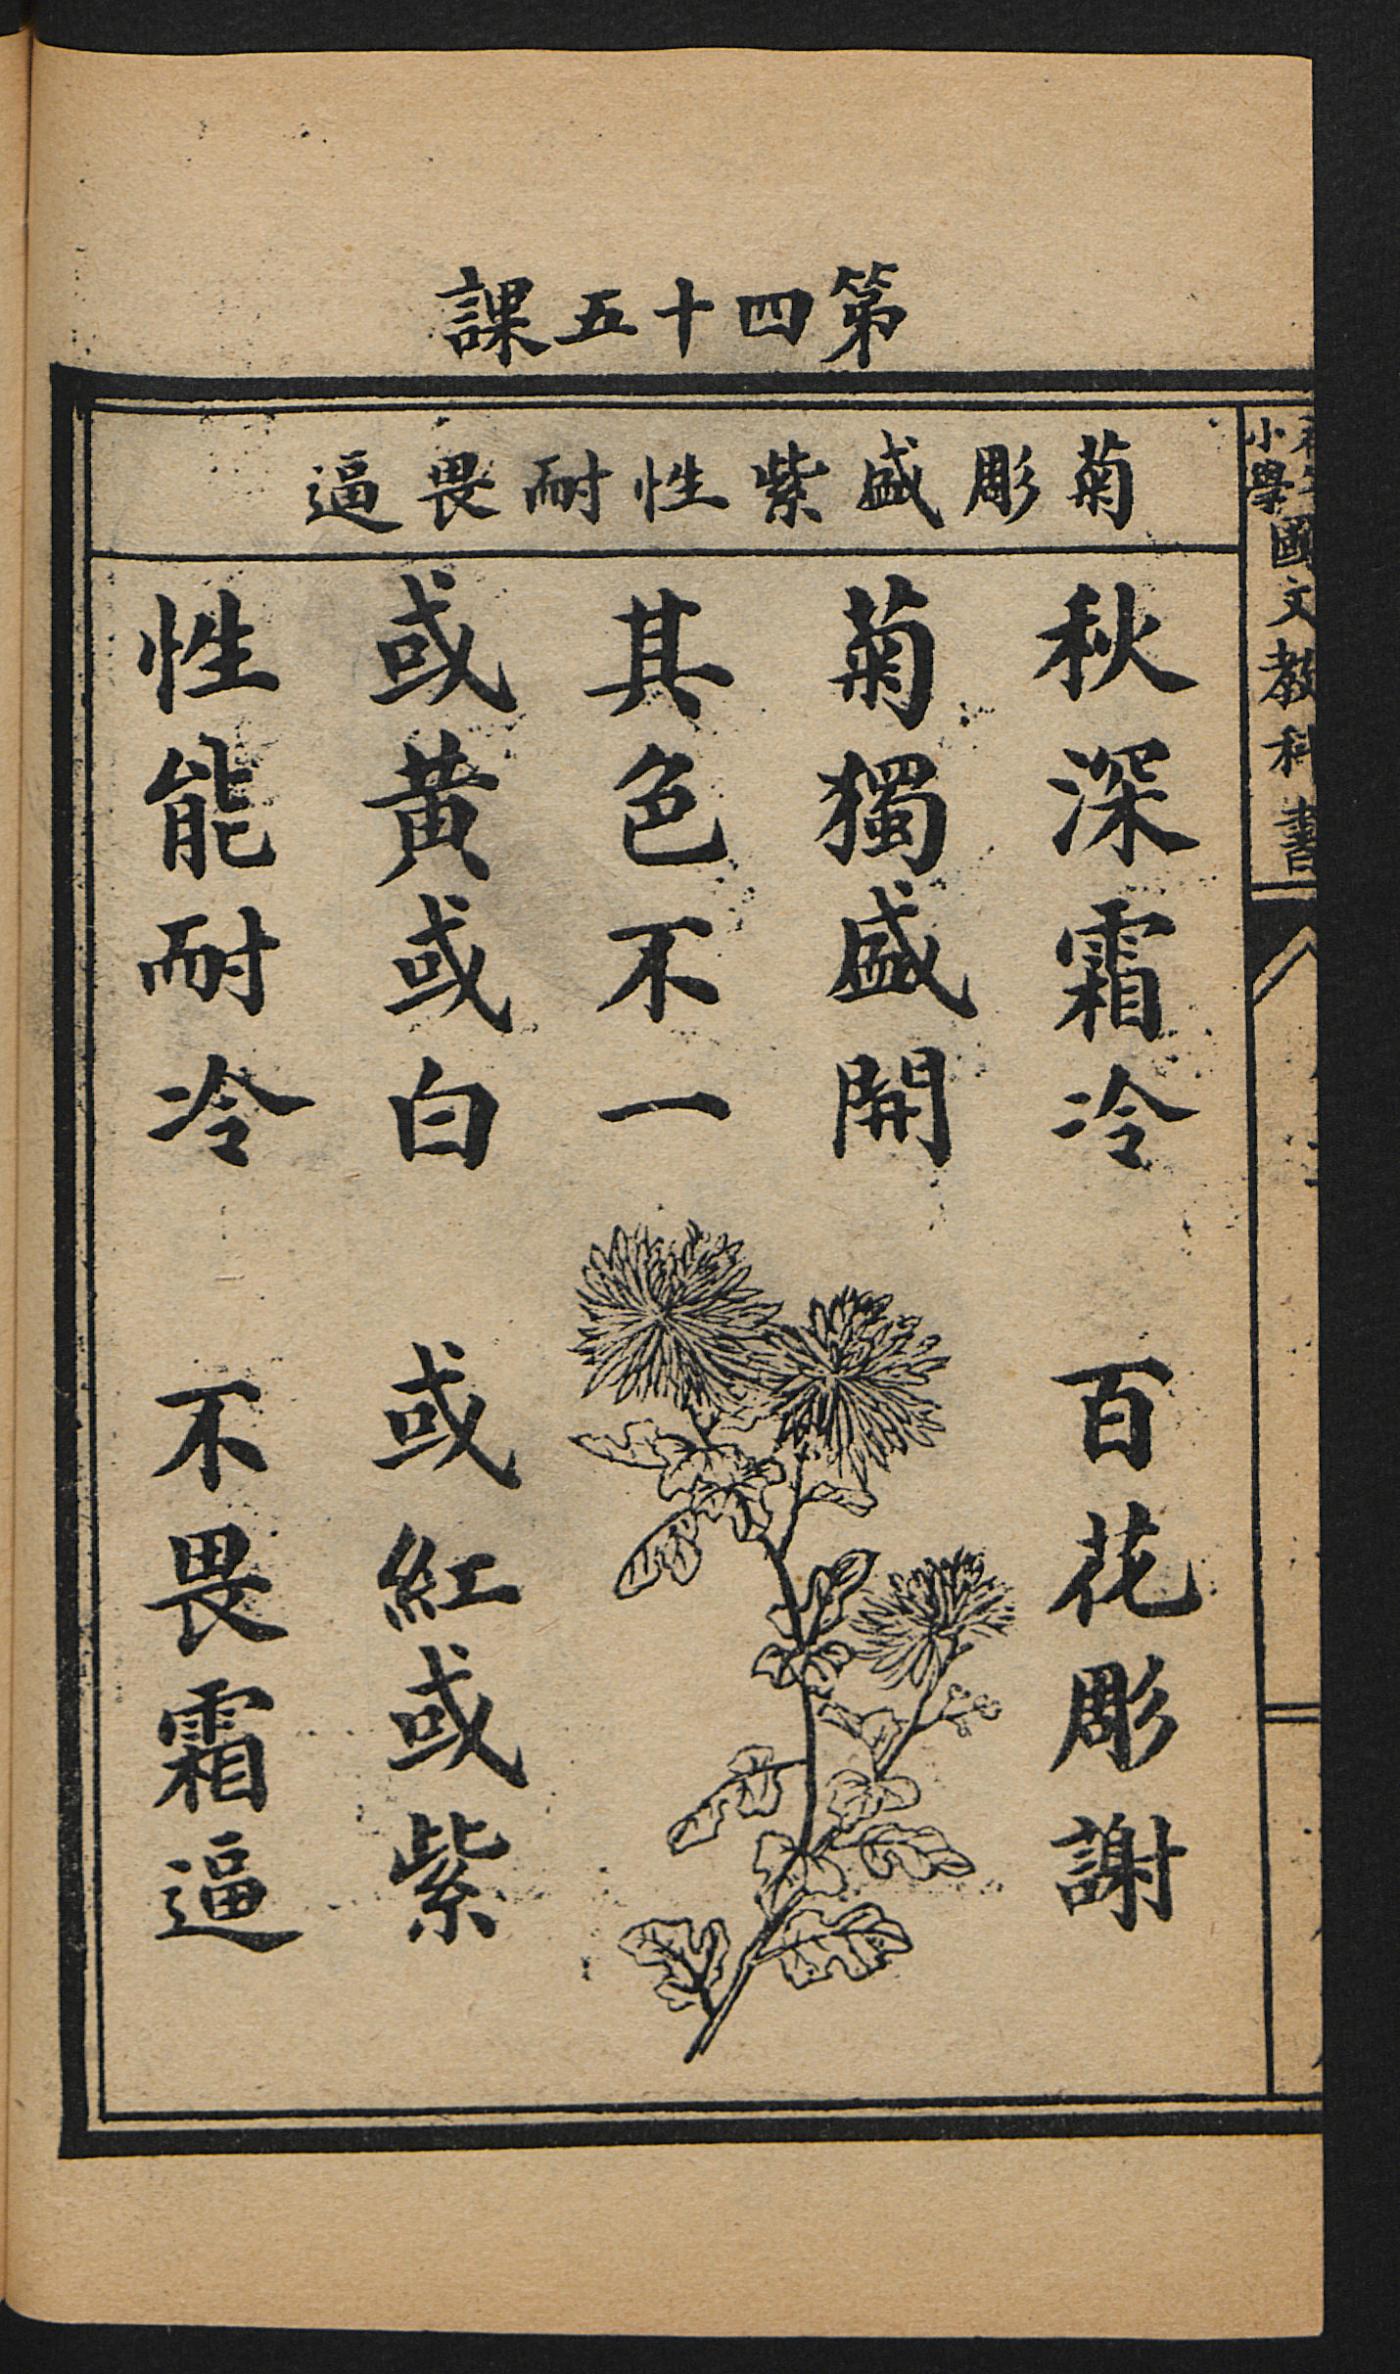 第四十五課
菊彫盛紫性耐畏逼
秋深霜冷　百花彫謝
菊獨盛開
其色不一
或黃或白　或紅或紫
性能耐冷　不畏霜逼
小學
國文教科書